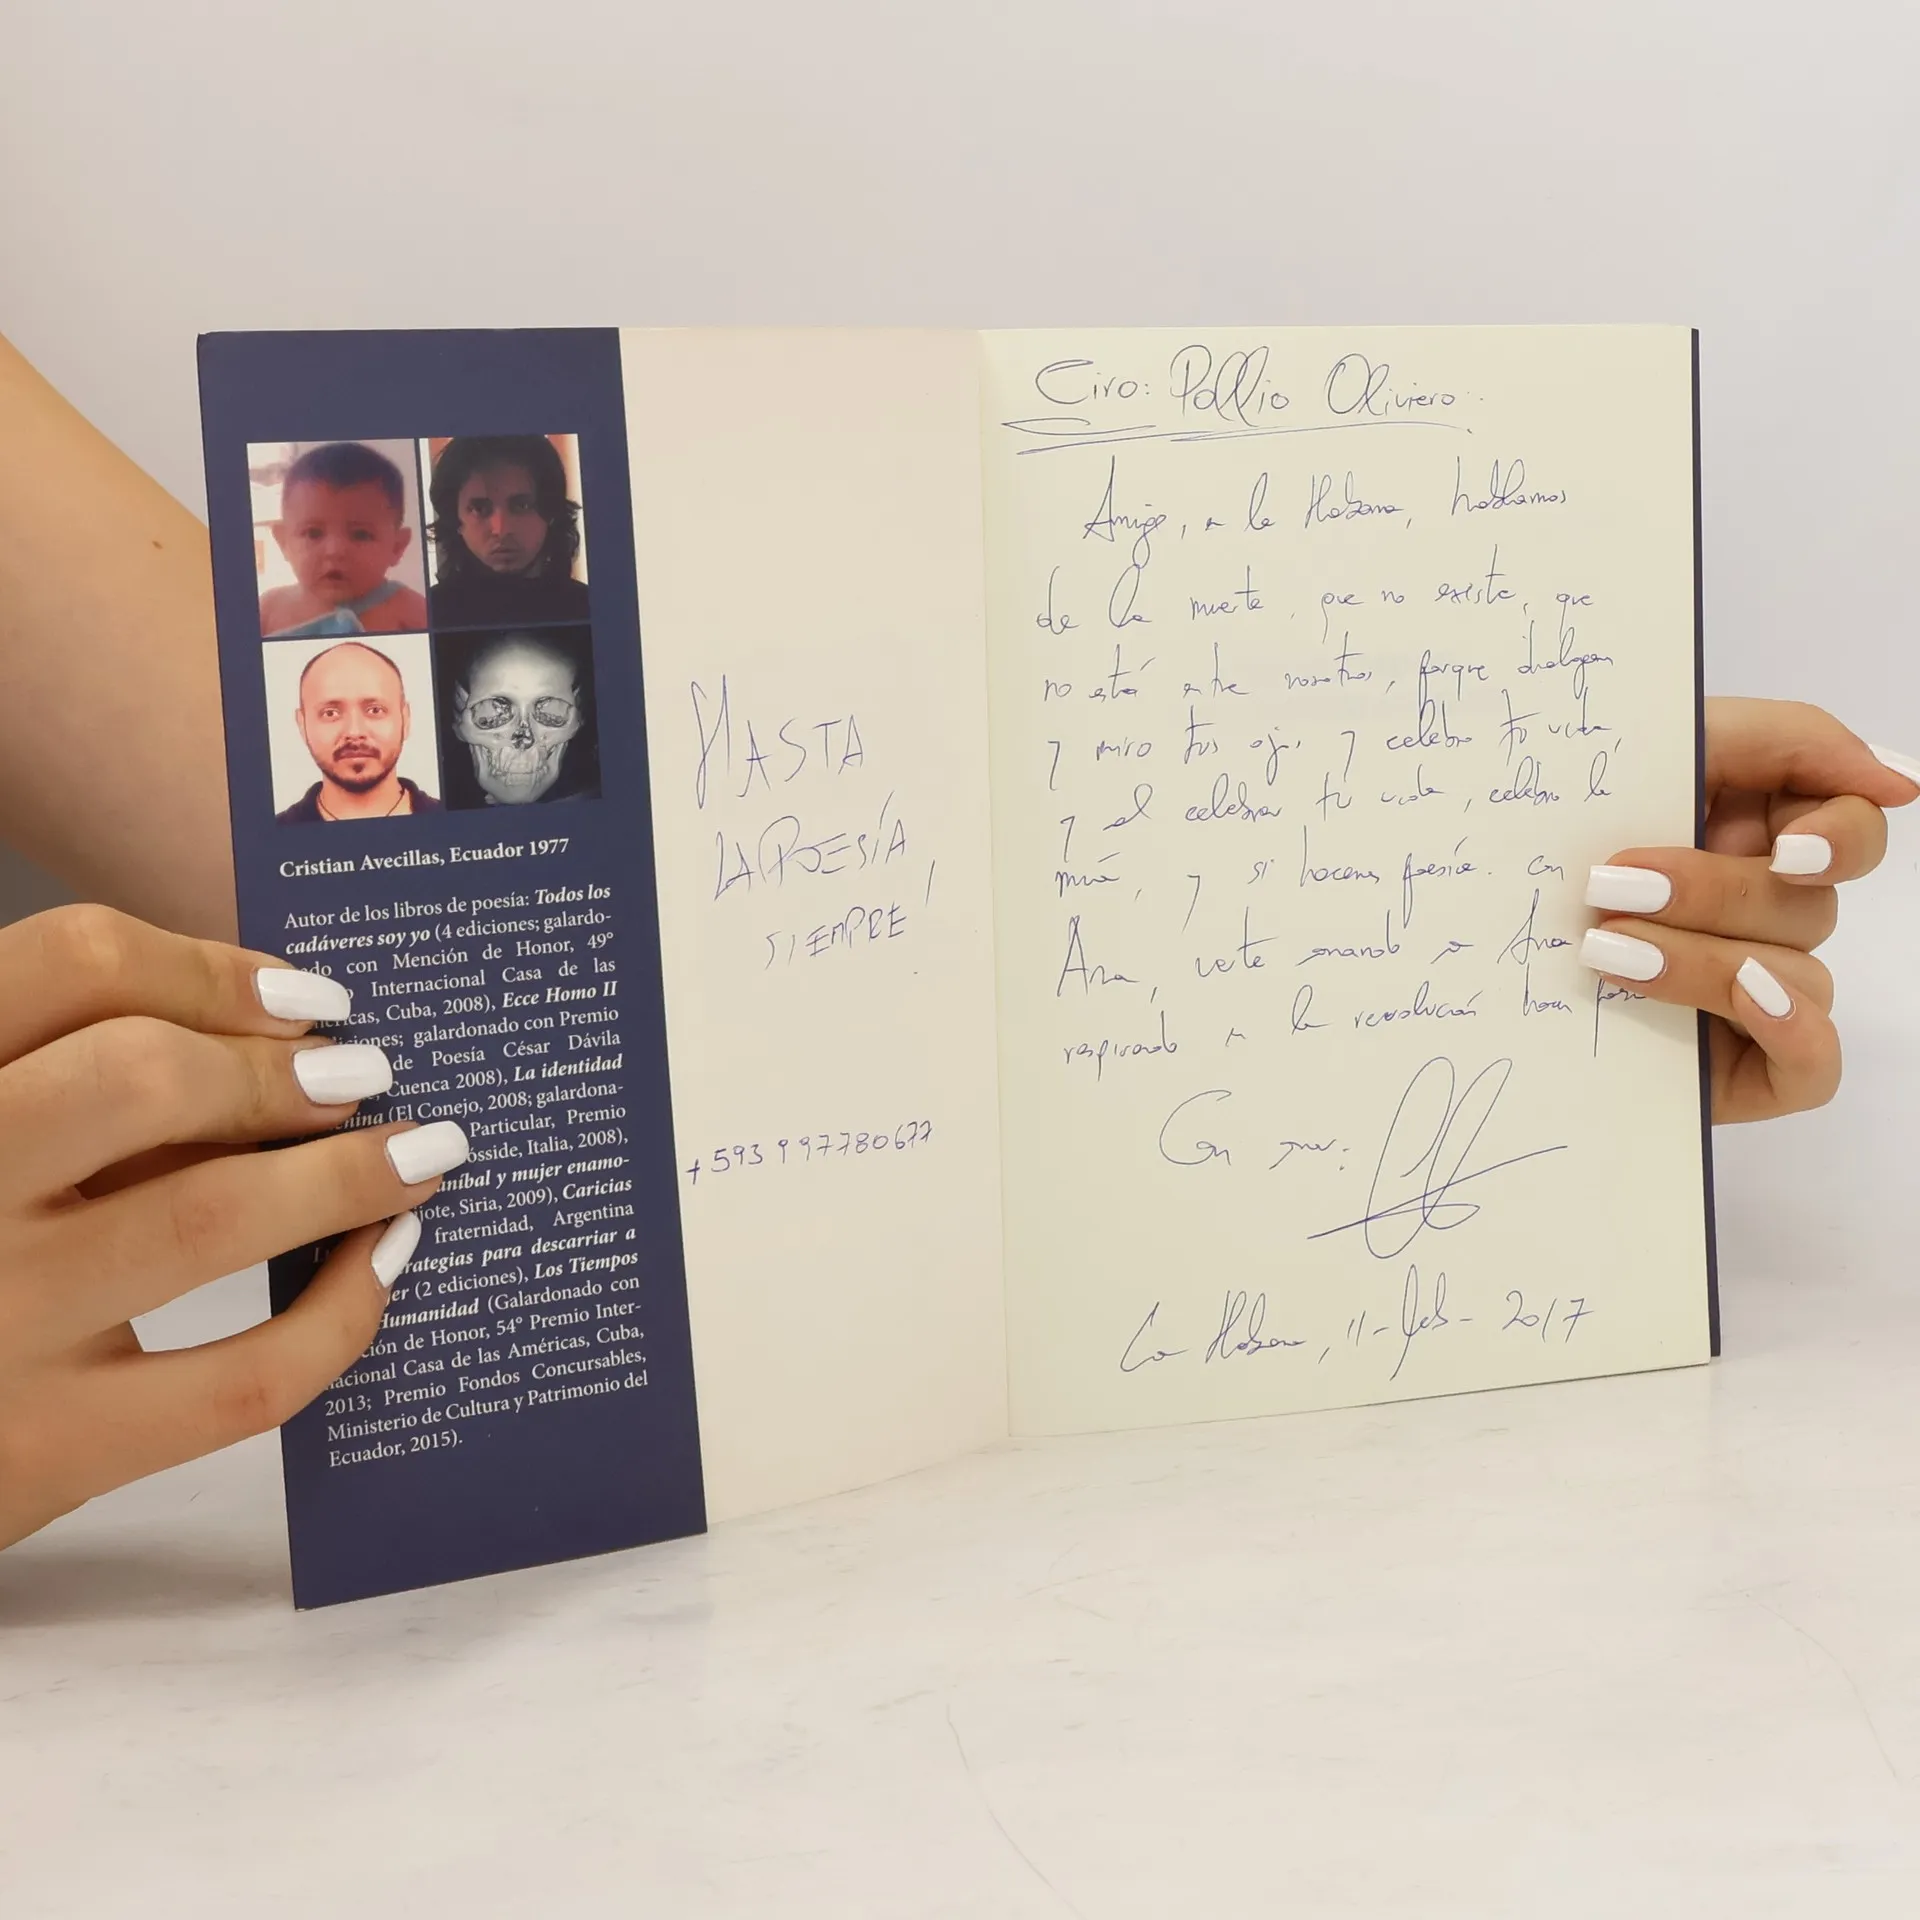 Cristian Avecillas, Ecuador 1977
Autor de los libros de poesía: Todos los
cadáveres soy yo (4 ediciones; galardo-
do con Mención de Honor, 49°
Internacional Casa de las
icas, Cuba, 2008), Ecce Homo II
iones; galardonado con Premio
de Poesía César Dávila
Cuenca 2008), La identidad
nina (El Conejo, 2008; galardona-
Particular, Premio
ósside, Italia, 2008),
aníbal y mujer enamo-
ijote, Siria, 2009), Caricias
fraternidad, Argentina
rategias para descarriar a
er (2 ediciones), Los Tiempos
Humanidad (Galardonado con
ción de Honor, 54° Premio Inter-
nacional Casa de las Américas, Cuba,
2013; Premio Fondos Concursables,
Ministerio de Cultura y Patrimonio del
Ecuador, 2015).
HASTA
LA POESÍA
SIEMPRE!
+593 997780677
Ciro: Pollio Oliviero
Amigo, en la Habana, hablamos
de la muerte, que no existe, que
no está entre nosotros, porque
y miro tus ojos y celebro tu vida,
y al celebrar tu vida, celebro la
mía, y si hacemos poesía. Con
Ana, vete amando a Ana
respirando en la revolución
Con amor:
La Habana, 11-feb-2017